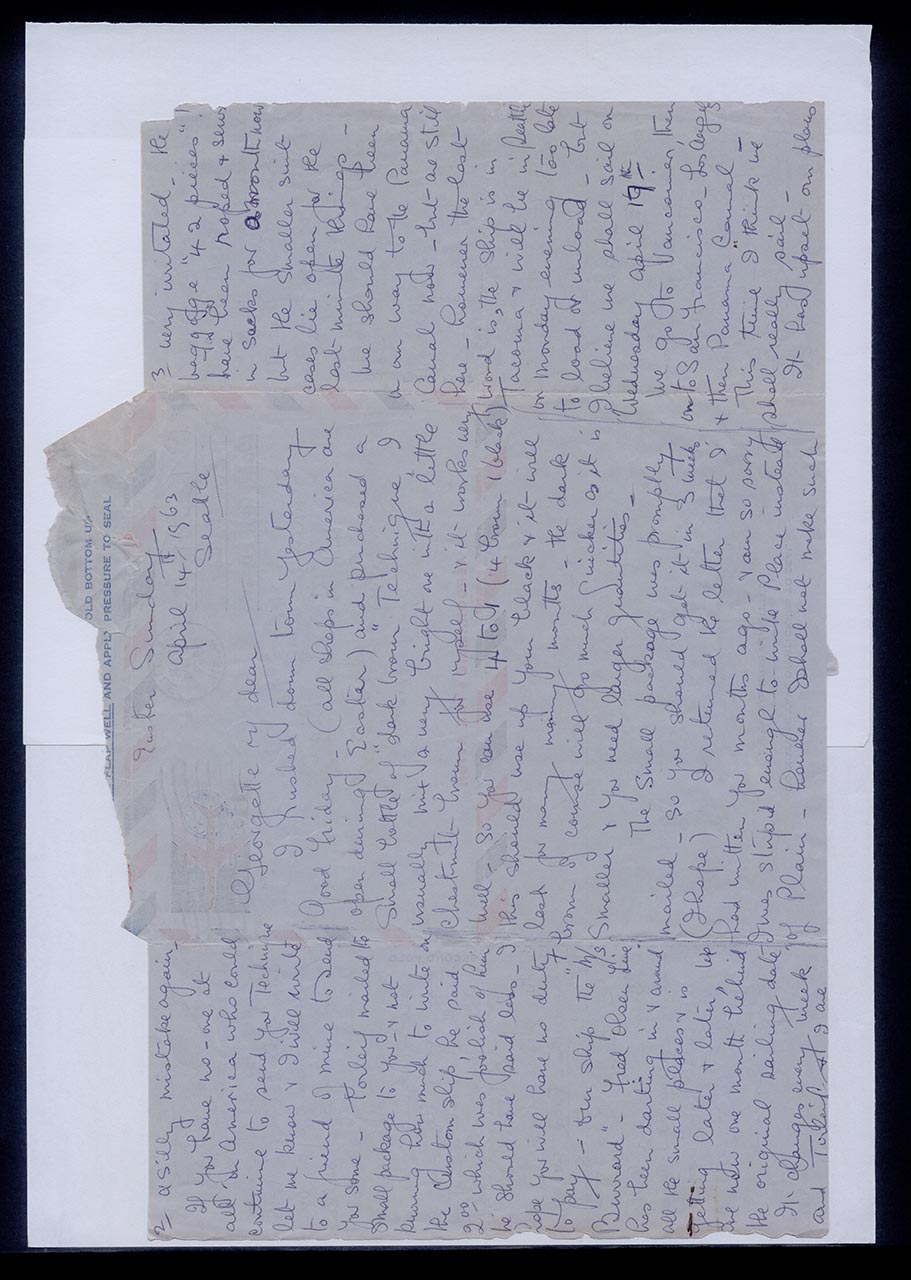 OLD BOTTOM U
FLAP WELL AND APPLY PRESSURE TO SEAL
Easter Sunday
April 14th 1963
Seattle
Georgette my dear -
I rushed down town yesterday
Good Friday - (all shops in America are
open during Easter) and purchased a
small bottle of "dark brown" Technique. I
usually mix a very bright one with a little
chestnut brown for myself - & it works very
well so you can use 4 to 1 (4 brown 1 black)
this should use up your black & it will
last for many many months - the dark
brown of course will go much quicker as it is
smaller & you need larger quantities -
The small package was promptly
mailed - so you should get it in 3 weeks
(I hope) I returned the letter that I
had written you months ago - & am so sorry
I was stupid enough to write Place instead
of Plain - however I shall not make such
2 a silly mistake again -
If you have no-one at
all in America who could
continue to send you Technique
let me know & I will write
to a friend of mine to send
you some - Torleif mailed the
small package to you - & not
knowing how much to write on
the custom slip he said
2.00 which was foolish of him
he should have said less - I
hope you will have no duty
to pay - our ship the "M/S
Burrard" - Fred Olsen Line
has been darting in & around
all the small places & is
getting later & later
are now one month behind
the original sailing date
It changes every week
and Torleif & I are
3 very irritated - the
baggage "42 pieces"!
have been roped & sewn
in sacks for a month now
but the smaller suit
cases lie open for the
last minute things -
We should have been
on our way to the Panama
Canal now - but are still
here - however the last
word is, the ship is in
Tacoma & will be in Seattle
on Monday evening too late
to load or unload - but
I believe we shall sail on
Wednesday April 17th
We go to Vancouver, then
on to San Francisco - Los Angeles
& then Panama Canal -
This time I think we
shall really sail -
It has upset our plans